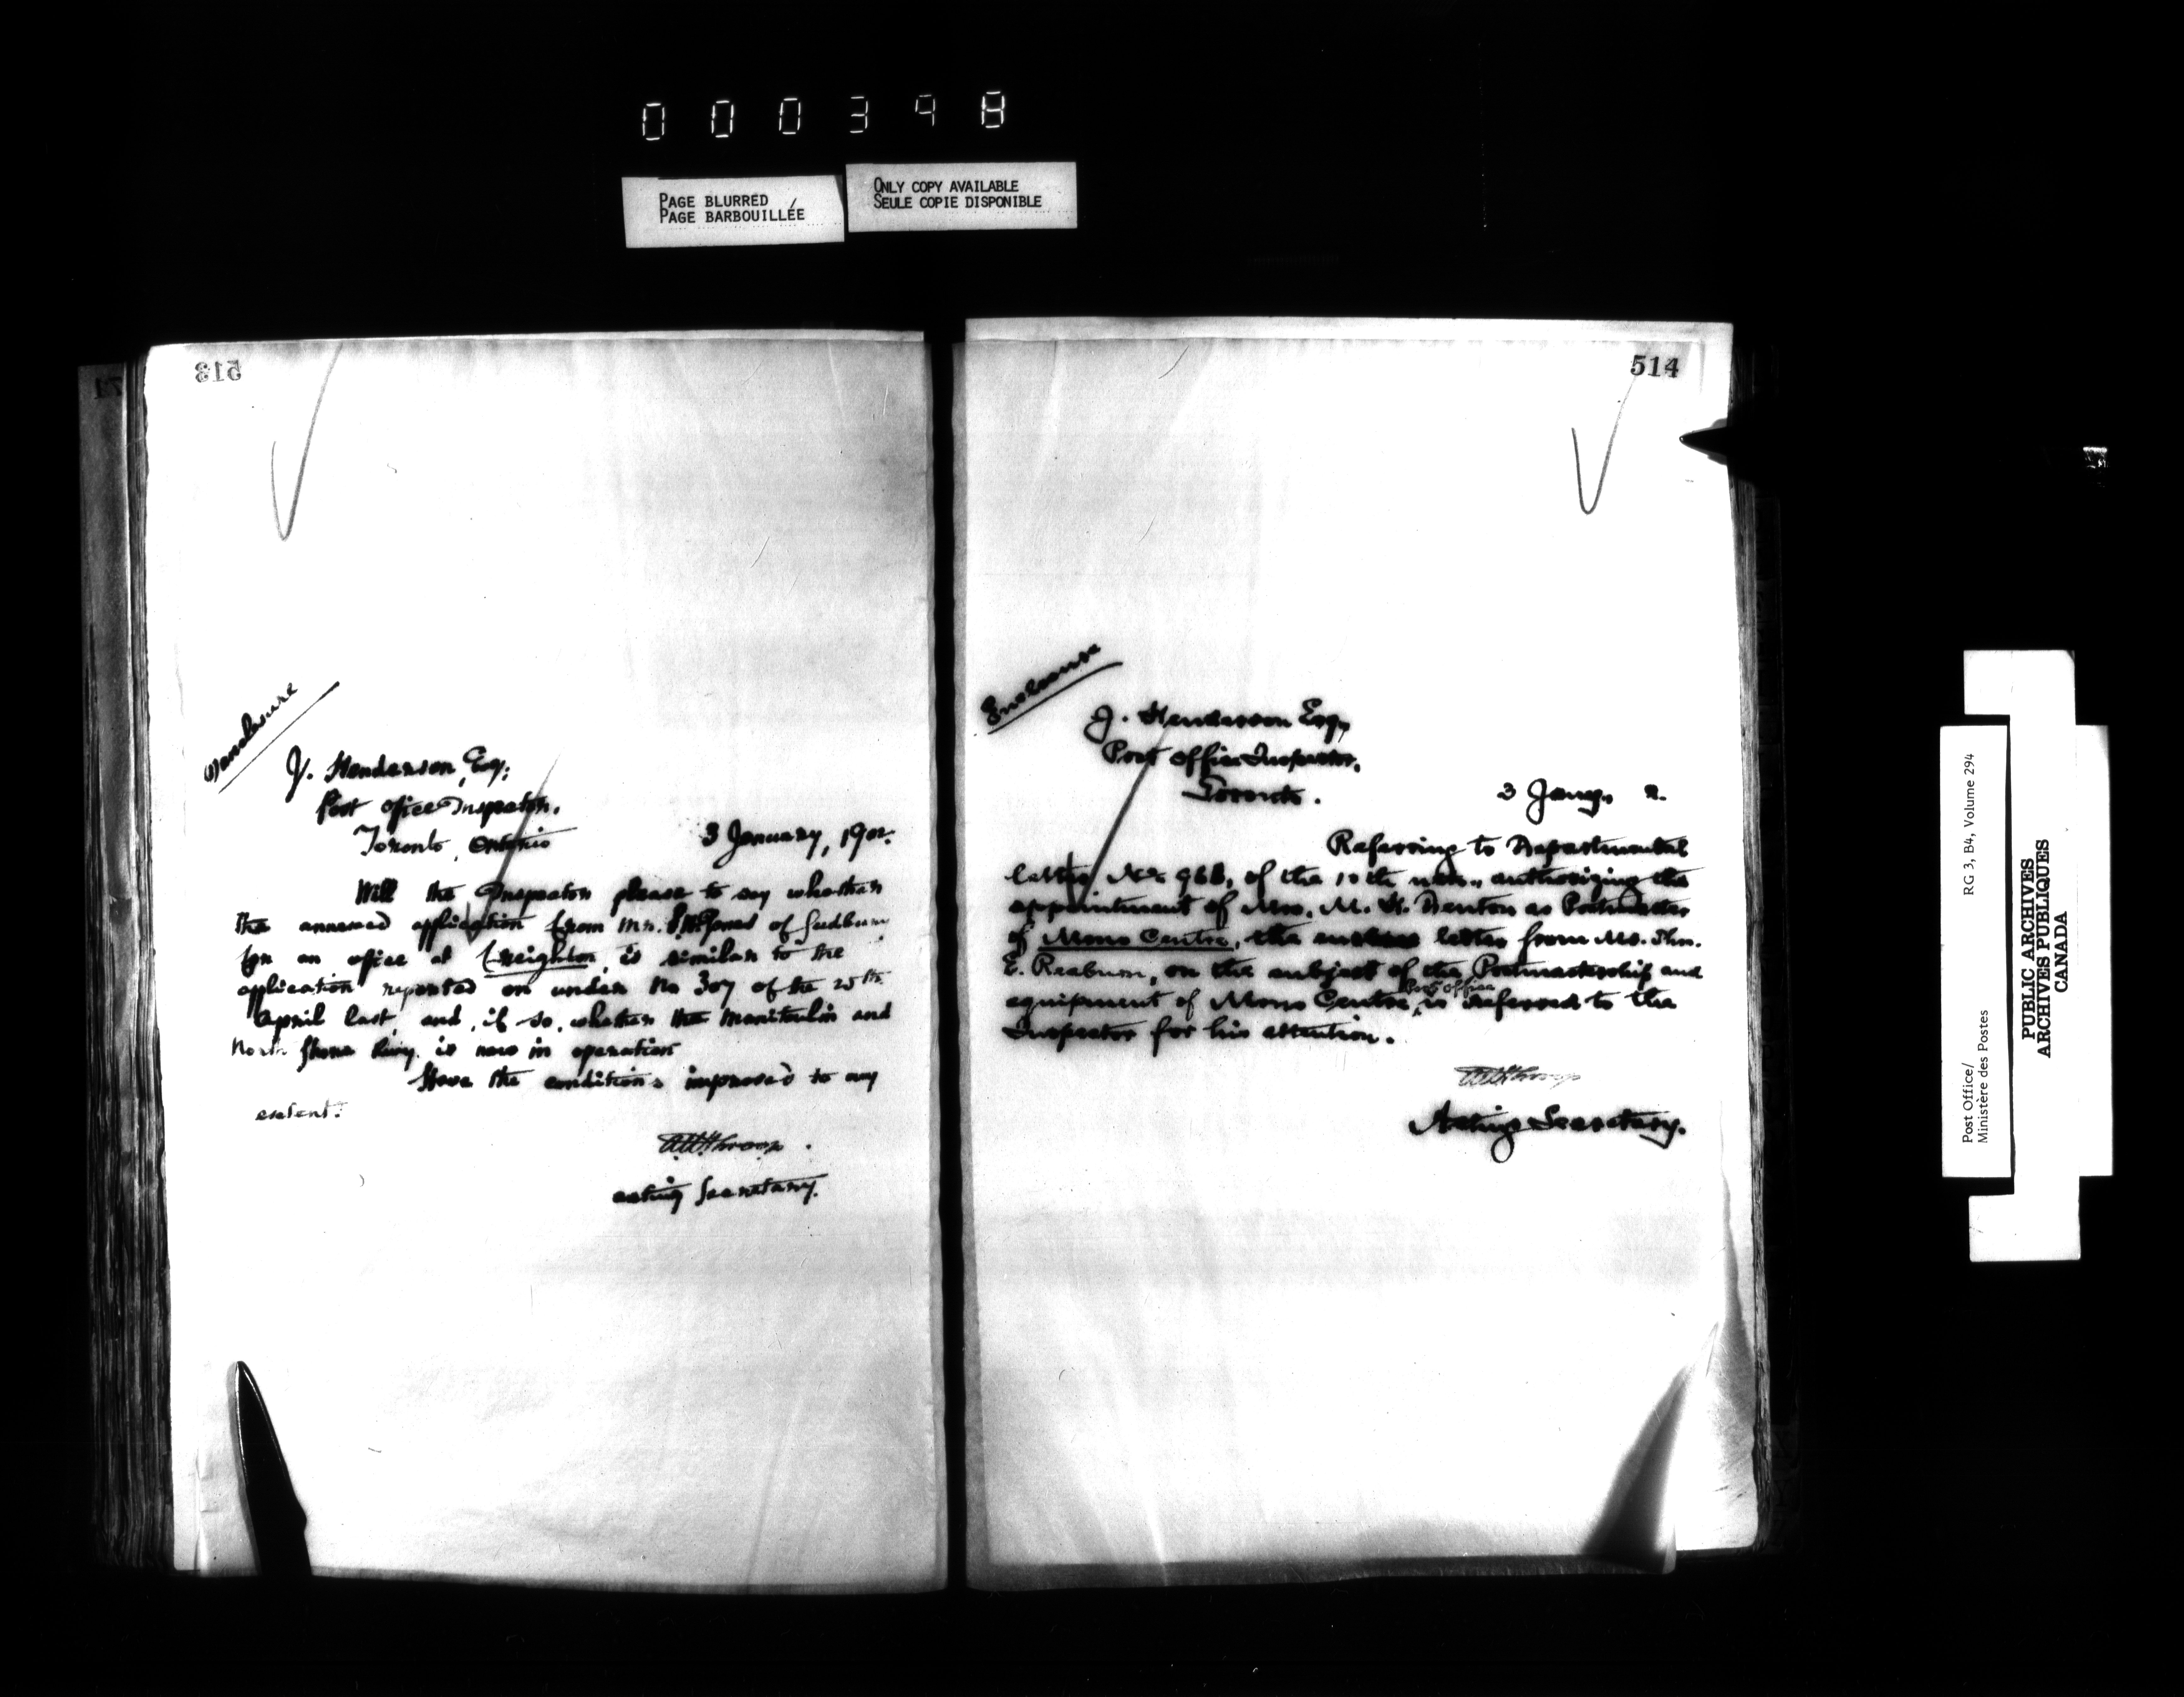 000398
PAGE BLURRED
PAGE BARBOUILLÉE
ONLY COPY AVAILABLE
SEULE COPIE DISPONIBLE
513
Enclosure
J. Henderson, Esq;
Post Office Inspector,
Toronto, Ontario
3 January, 1902.
Will the Inspector please to say whether
the annexed application from Mr. Jones of Sudbury
for an office at Creighton, is similar to the
application reported on under No 307 of the 25th
April last, and, if so, whether the Manitoulin and
North Shore Rwy. is now in operation
Have the conditions improved to any
extent?
acting Secretary.
514
Enclosure
J. Henderson Esq,
Post Office Inspector,
Toronto.
3 Jany., 2.
Referring to Departmental
letter No. 968, of the 10th ult., authorizing the
appointment of Mrs. M. H. Denton as Postmaster
of Mono Centre, the enclosed letter from Mr. Jhn.
E. Reaburn, on the subject of the Postmastership and
equipment of Mono Centre Post Office, is referred to the
Inspector for his attention.
Acting Secretary.
Post Office/
Ministère des Postes
RG 3, B4, Volume 294
PUBLIC ARCHIVES
ARCHIVES PUBLIQUES
CANADA